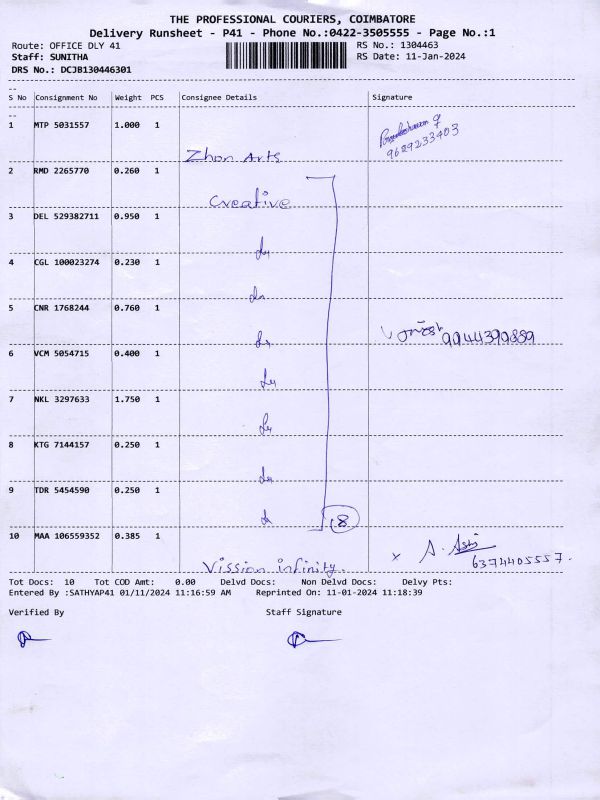 THE PROFESSIONAL COURIERS, COIMBATORE
Delivery Runsheet - P41 - Phone No.:0422-3505555 - Page No.:1
Route: OFFICE DLY 41 RS No.: 1304463
Staff: SUNITHA RS Date: 11-Jan-2024
DRS No.: DCJB130446301
S No Consignment No Weight PCS Consignee Details Signature
1 MTP 5031557 1.000 1
9629233403
Zhon Arts
2 RMD 2265770 0.260 1
Creative
3 DEL 529382711 0.950 1
4 CGL 100023274 0.230 1
5 CNR 1768244 0.760 1
9944390889
6 VCM 5054715 0.400 1
7 NKL 3297633 1.750 1
8 KTG 7144157 0.250 1
9 TDR 5454590 0.250 1
8
10 MAA 106559352 0.385 1
Vission infinity.
x A. 
6374405557.
Tot Docs: 10 Tot COD Amt: 0.00 Delvd Docs: Non Delvd Docs: Delvy Pts:
Entered By :SATHYAP41 01/11/2024 11:16:59 AM Reprinted On: 11-01-2024 11:18:39
Verified By Staff Signature